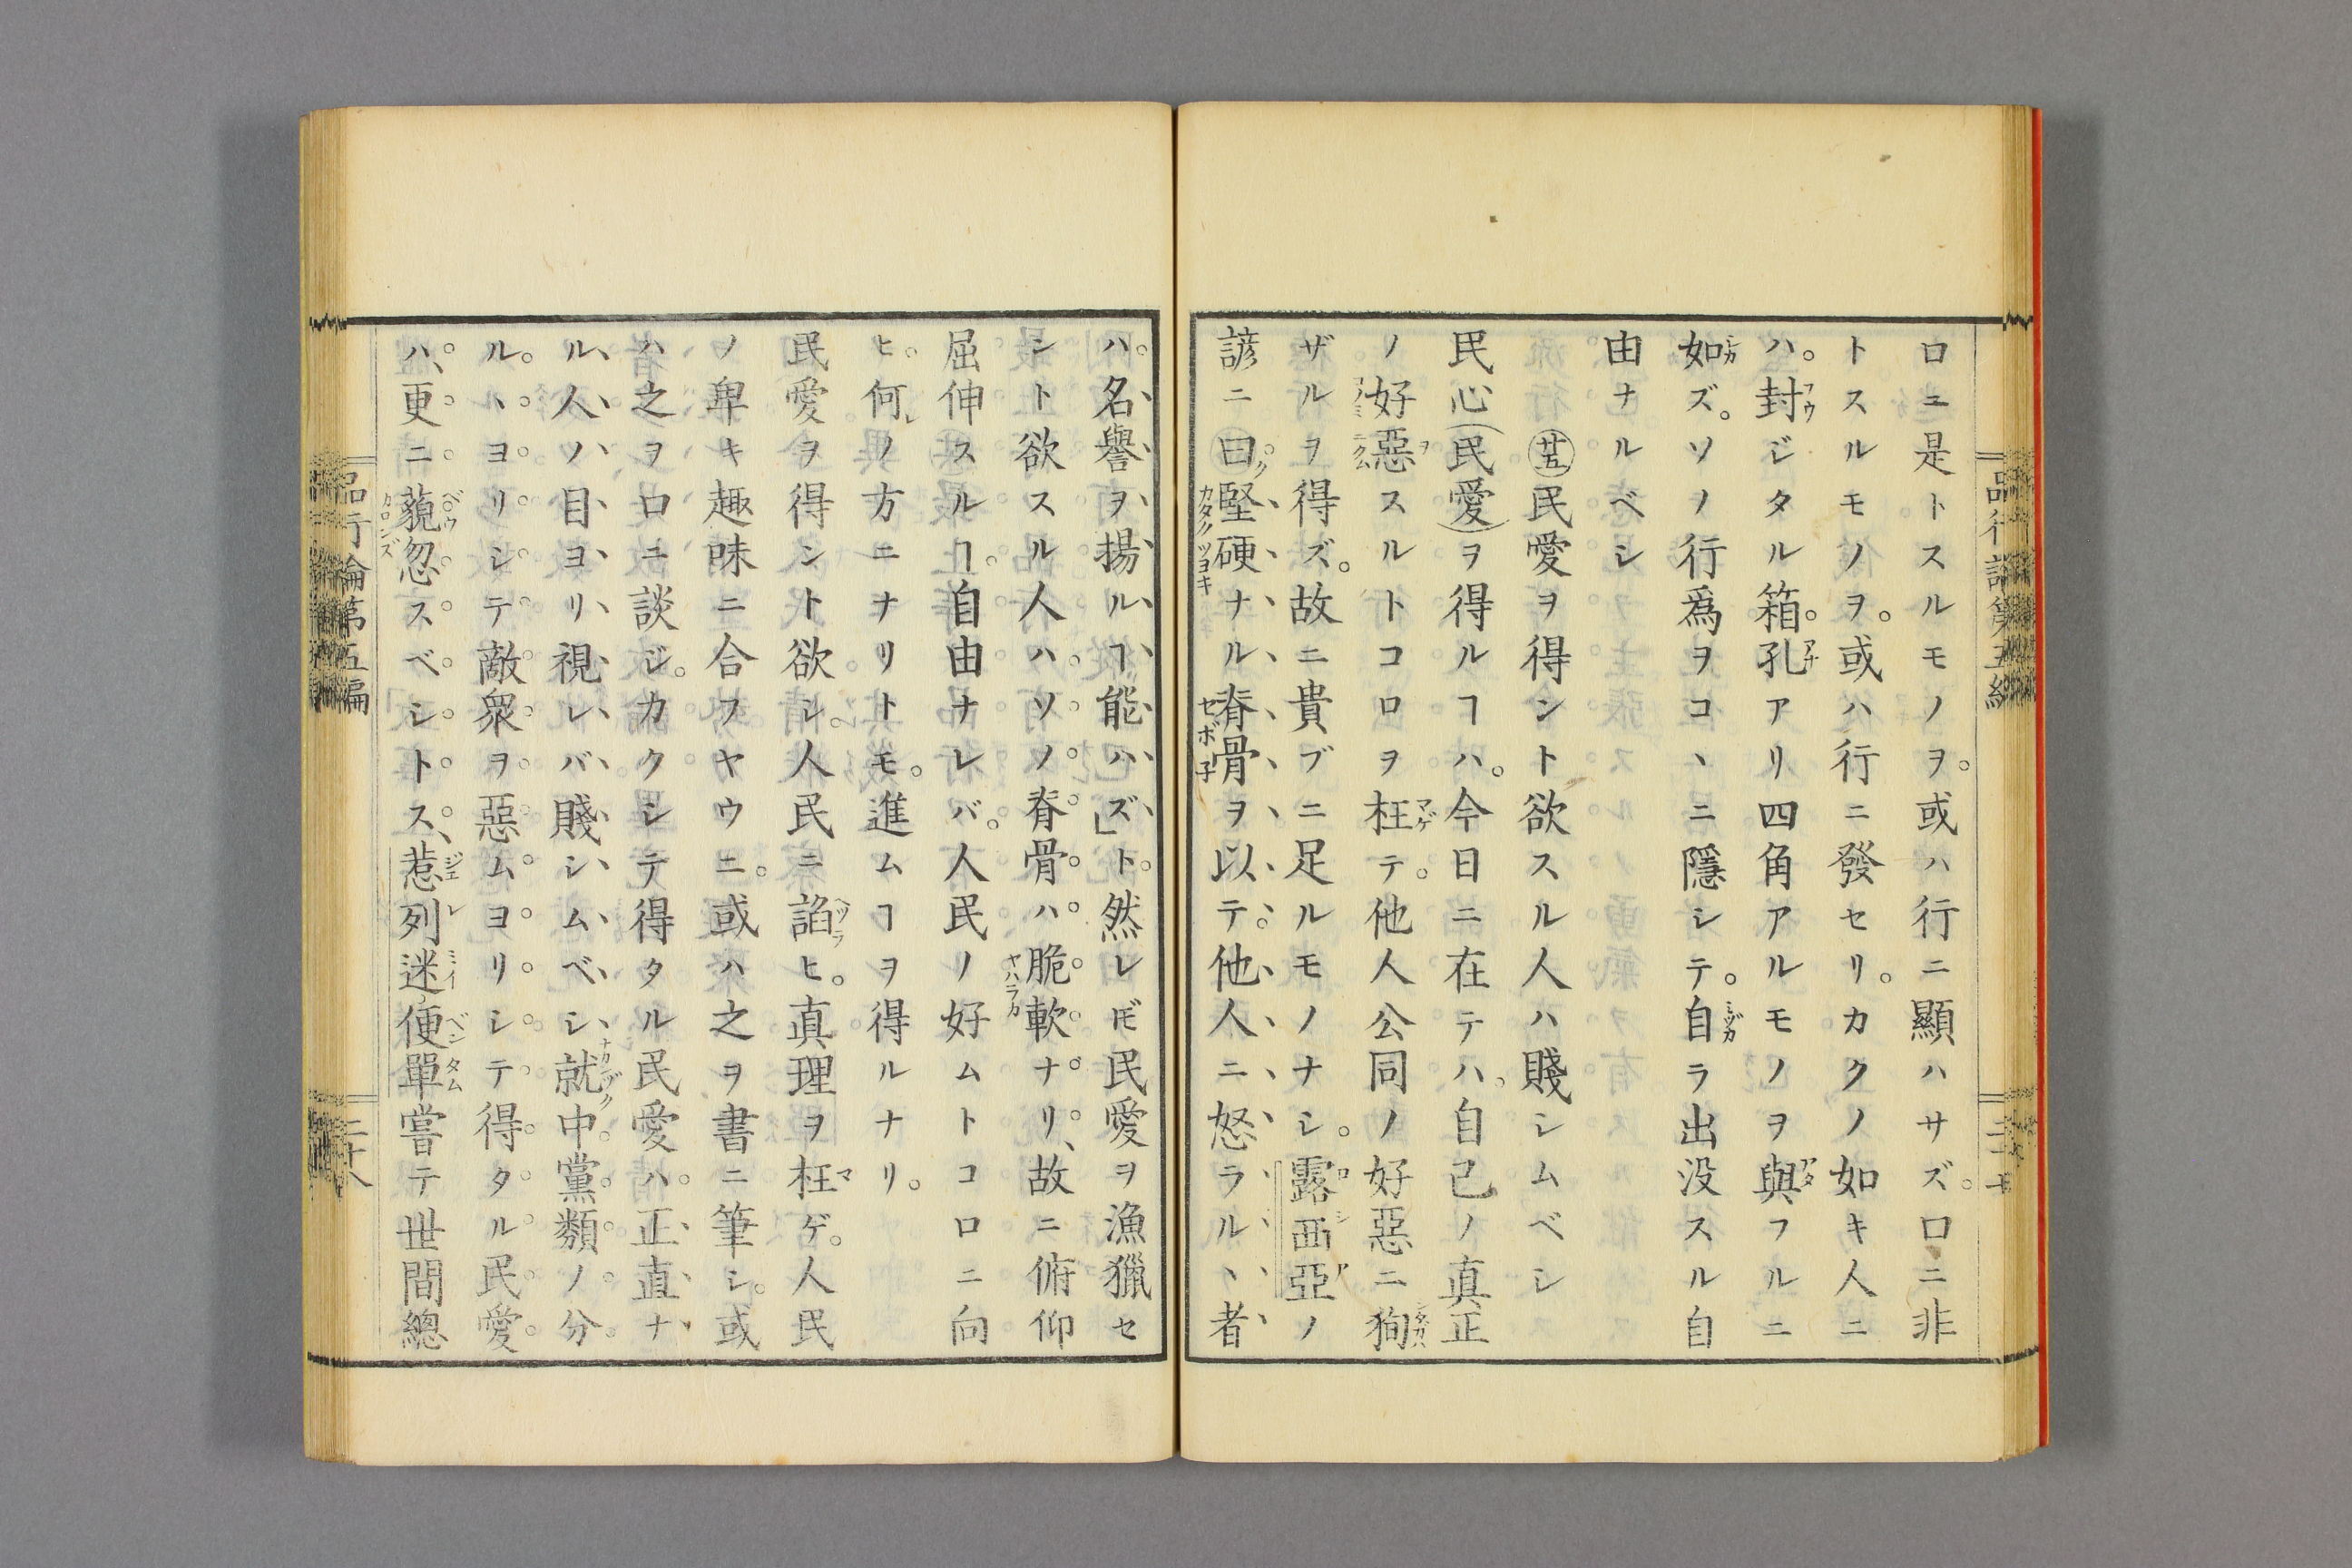 口ニ是トスルモノヲ。或ハ行ニ顯ハサズ。口ニ非
トスルモノヲ。或ハ行ニ發セリ。カクノ如キ人ニ
ハ。封ジタル箱。孔アリ四角アルモノヲ與フルニ
如ズ。ソノ行爲ヲコヽニ隱シテ。自ラ出没スル自
由ナルベシ
㊄民愛ヲ得ント欲スル人ハ賤シムベシ
民心(民愛)ヲ得ルヿハ。今日ニ在テハ。自己ノ真正
ノ好惡スルトコロヲ枉テ。他人公同ノ好惡ニ狥
ザルヲ得ズ。故ニ貴ブニ足ルモノナシ。露西亞ノ
諺ニ曰ク堅硬ナル脊骨ヲ以テ。他人ニ怒ラルヽ者
ハ。名譽ヲ揚ルヿ能ハズ」ト。然レ𪜈民愛ヲ漁獵セ
ント欲スル人ハソノ脊骨ハ脆軟ナリ、故ニ俯仰
屈伸スルヿ。自由ナレバ。人民ノ好ムトコロニ向
ヒ。何レノ方ニナリトモ。進ムヿヲ得ルナリ。
民愛ヲ得ント欲シ。人民ニ諂ヒ。真理ヲ枉ゲ。人民
ノ卑キ趣味ニ合フヤウニ。或ハ之ヲ書ニ筆シ。或
ハ之ヲ口ニ談ジ。カクシテ得タル民愛ハ。正直ナ
ル人ノ目ヨリ視レバ賤シムベシ、就中。黨類ノ分
ルヽヨリシテ敵衆ヲ惡ムヨリシテ得タル民愛
ハ、更ニ藐忽スベシトス、惹列迷便單嘗テ世間總
品行論第五編
二十八